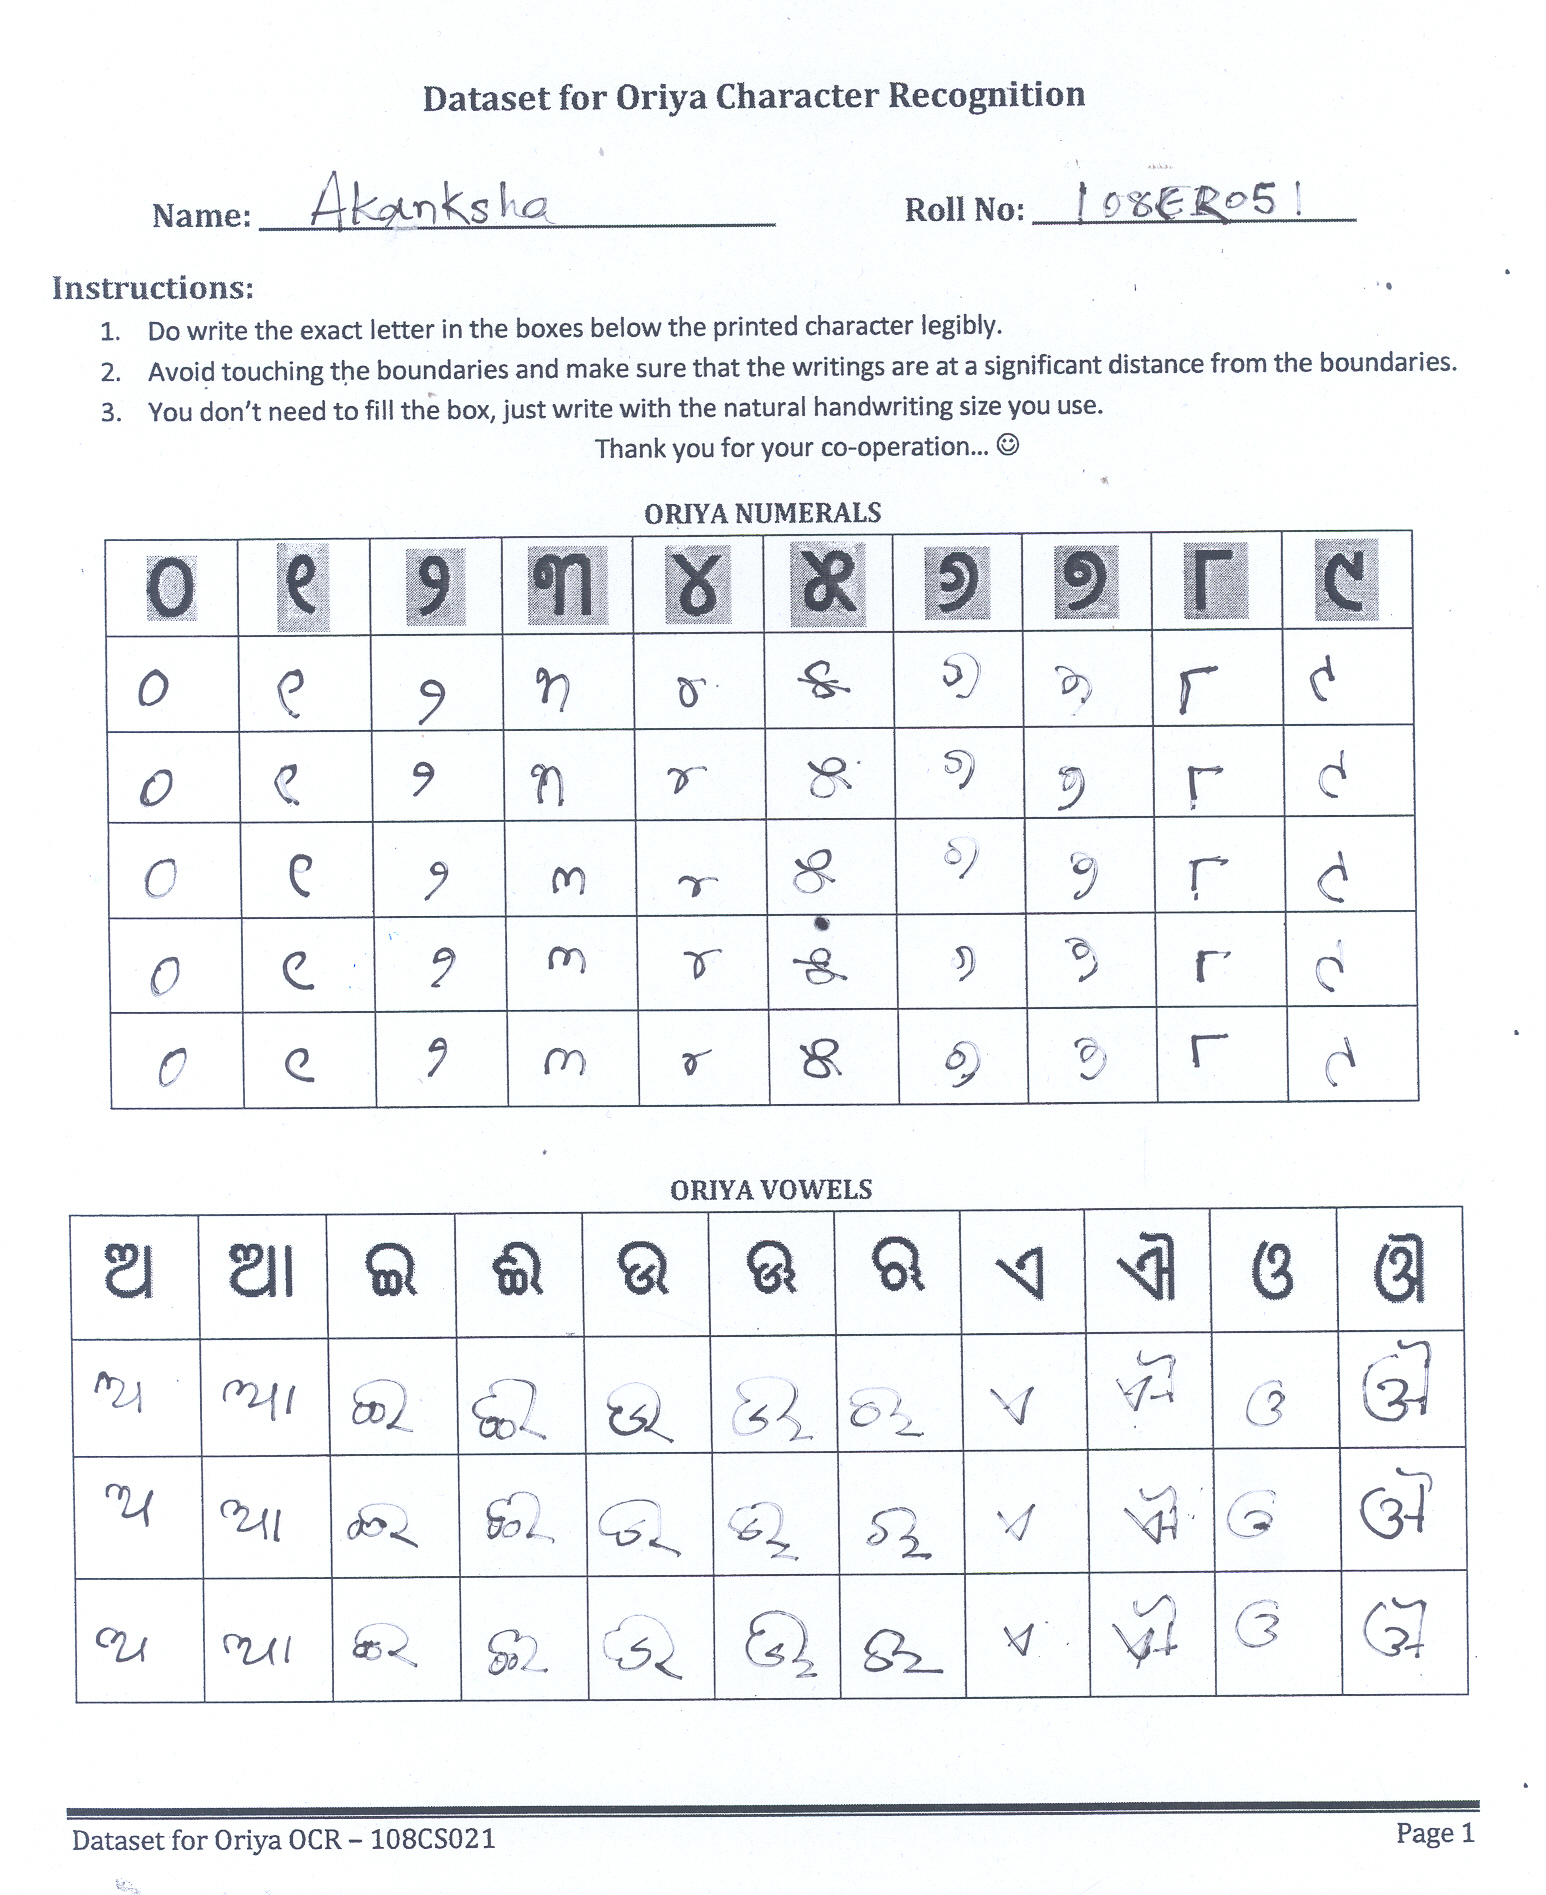 Dataset for Oriya Character Recognition
Name: Akanksha Roll No: 108ER051
Instructions:
1. Do write the exact letter in the boxes below the printed character legibly.
2. Avoid touching the boundaries and make sure that the writings are at a significant distance from the boundaries.
3. You don't need to fill the box, just write with the natural handwriting size you use.
Thank you for your co-operation... ☺
ORIYA NUMERALS
୦ ୧ ୨ ୩ ୪ ୫ ୬ ୭ ୮ ୯
୦ ୧ ୨ ୩ ୪ ୫ ୬ ୭ ୮ ୯
୦ ୧ ୨ ୩ ୪ ୫ ୬ ୭ ୮ ୯
୦ ୧ ୨ ୩ ୪ ୫ ୬ ୭ ୮ ୯
୦ ୧ ୨ ୩ ୪ ୫ ୬ ୭ ୮ ୯
୦ ୧ ୨ ୩ ୪ ୫ ୬ ୭ ୮ ୯
ORIYA VOWELS
ଅ ଆ ଇ ଈ ଉ ଊ ଋ ଏ ଐ ଓ ଔ
ଅ ଆ ଇ ଈ ଉ ଊ ଋ ଏ ଐ ଓ ଔ
ଅ ଆ ଇ ଈ ଉ ଊ ଋ ଏ ଐ ଓ ଔ
ଅ ଆ ଇ ଈ ଉ ଊ ଋ ଏ ଐ ଓ ଔ
Dataset for Oriya OCR – 108CS021 Page 1